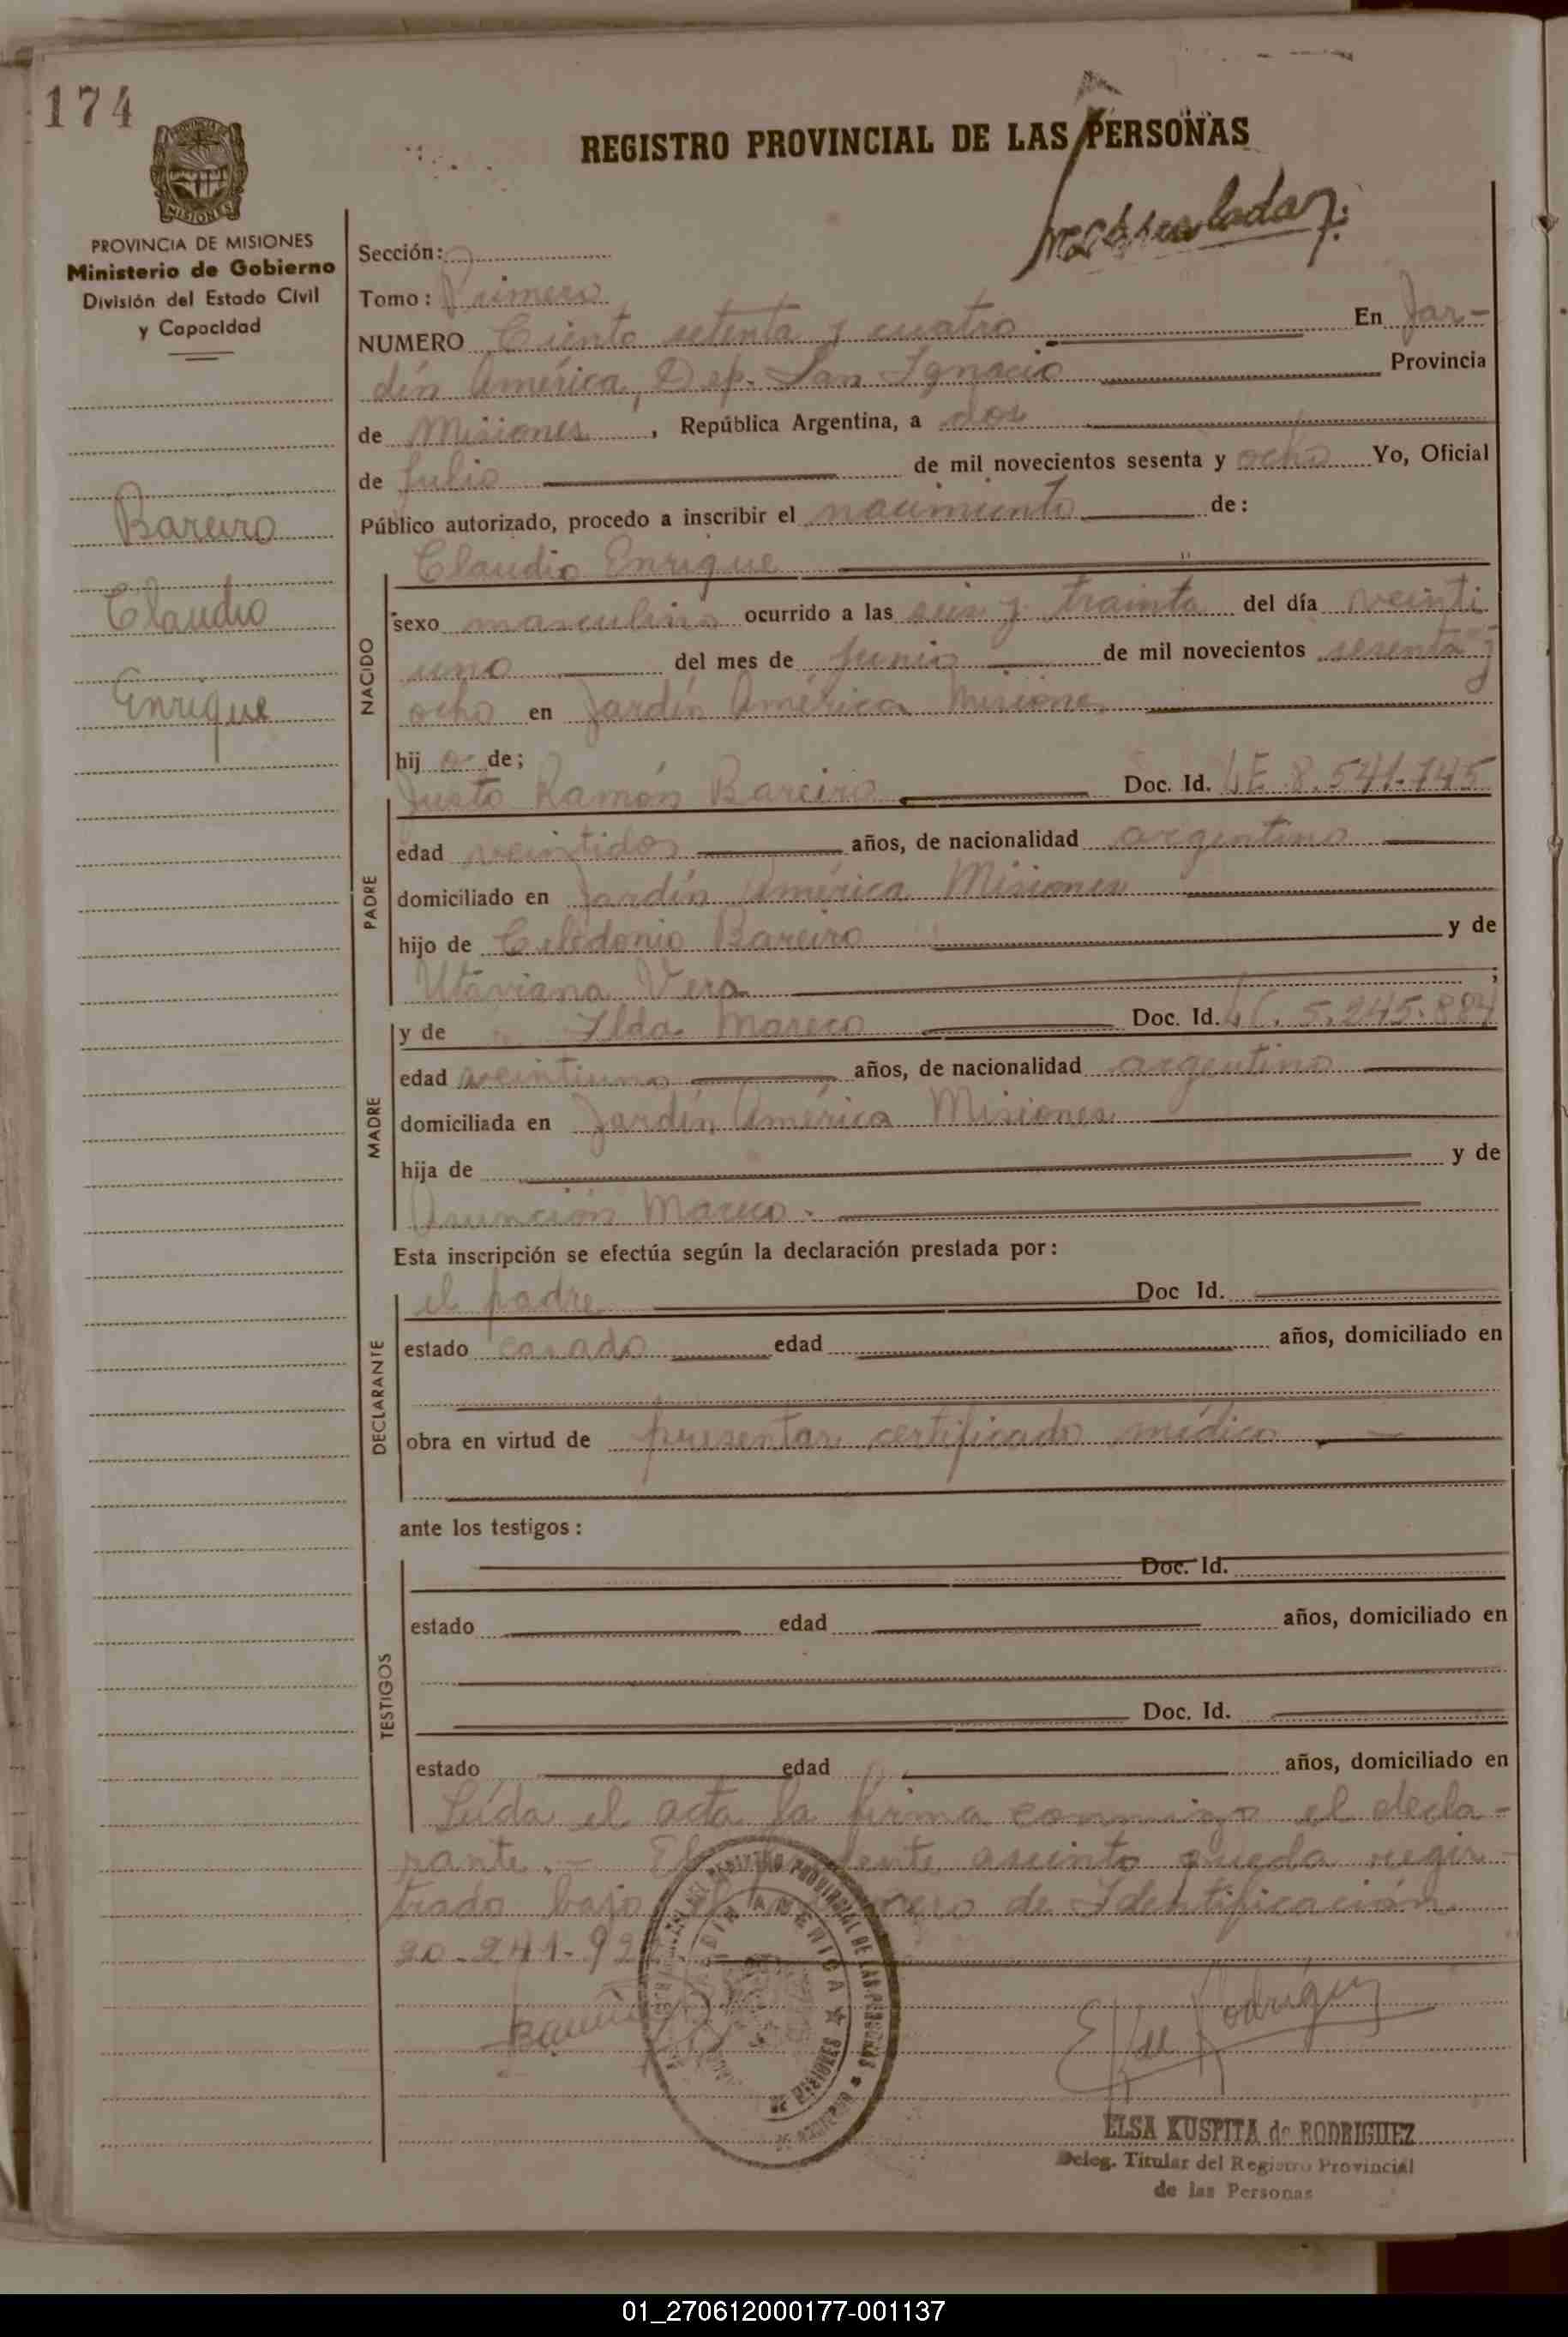 174
REGISTRO PROVINCIAL DE LAS PERSONAS
PROVINCIA DE MISIONES
Ministerio de Gobierno
División del Estado Civil
y Capacidad
Bareiro
Claudio
Enrique
Sección:
Tomo: Primero
NUMERO Ciento setenta y cuatro En Jar-
dín América, Dep. San Ignacio Provincia
de Misiones, República Argentina, a dos
de Julio de mil novecientos sesenta y ocho Yo, Oficial
Público autorizado, procedo a inscribir el nacimiento de:
Claudio Enrique
NACIDO
sexo masculino ocurrido a las seis y trainta del día veinti
uno del mes de Junio de mil novecientos sesenta y
ocho en Jardín América Misiones
hij o de;
PADRE
Justo Ramón Bareiro Doc. Id. LE 8.541.745
edad veintidos años, de nacionalidad argentino
domiciliado en Jardín América Misiones
hijo de Celedonio Bareiro y de
Utaviana Vera ;
MADRE
y de Ilda Mareco Doc. Id. LC. 5.245.884
edad veintiuno años, de nacionalidad argentino
domiciliada en Jardín América Misiones
hija de y de
Asunción Mareco.
Esta inscripción se efectúa según la declaración prestada por:
DECLARANTE
el padre Doc Id.
estado casado edad años, domiciliado en
obra en virtud de presentar certificado médico
ante los testigos:
TESTIGOS
Doc. Id.
estado edad años, domiciliado en
Doc. Id.
estado edad años, domiciliado en
Leída el acta la firma conmigo el decla-
rante.- El asiento queda regis-
trado bajo el de Identificación
20-241-92
REGISTRO PROVINCIAL DE LAS PERSONAS
JARDIN AMERICA
MISIONES
ELSA KUSPITA de RODRIGUEZ
Deleg. Titular del Registro Provincial
de las Personas
01_270612000177-001137